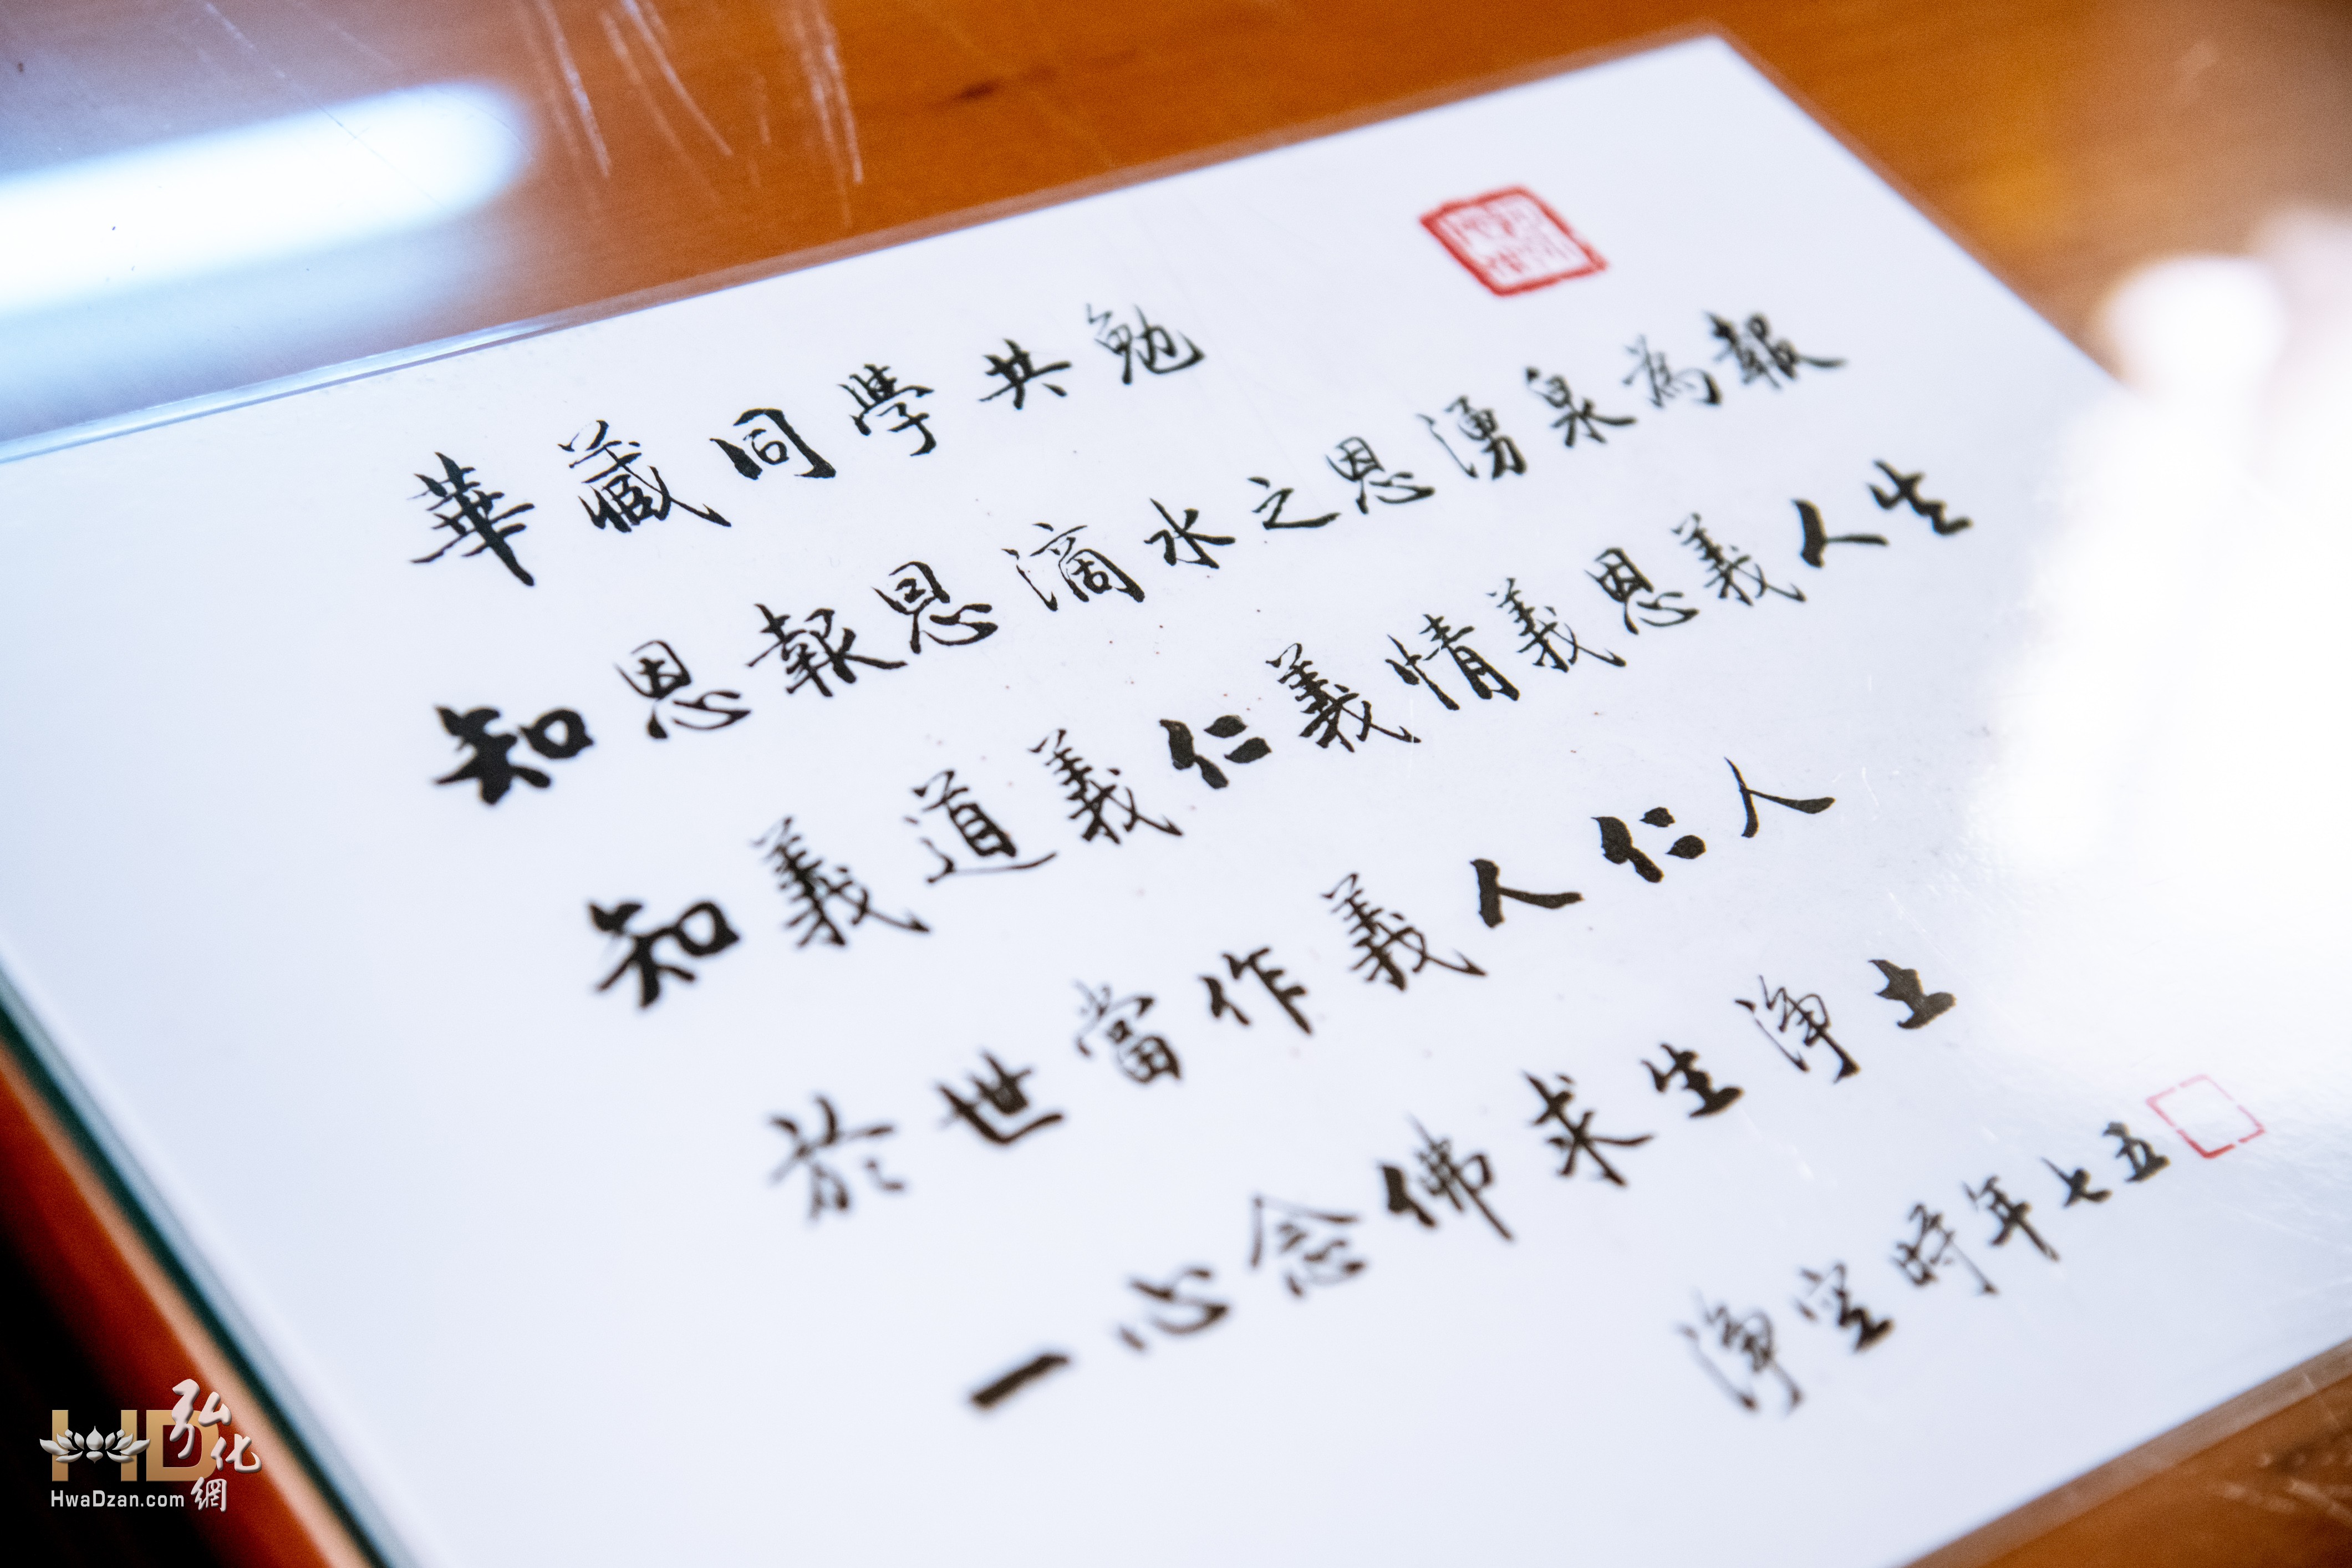 華藏同學共勉
知恩報恩滴水之恩湧泉為報
知義道義仁義情義恩義人生
於世當作義人仁人
一心念佛求生淨土
淨空時年七五
HD弘化網
HwaDzan.com